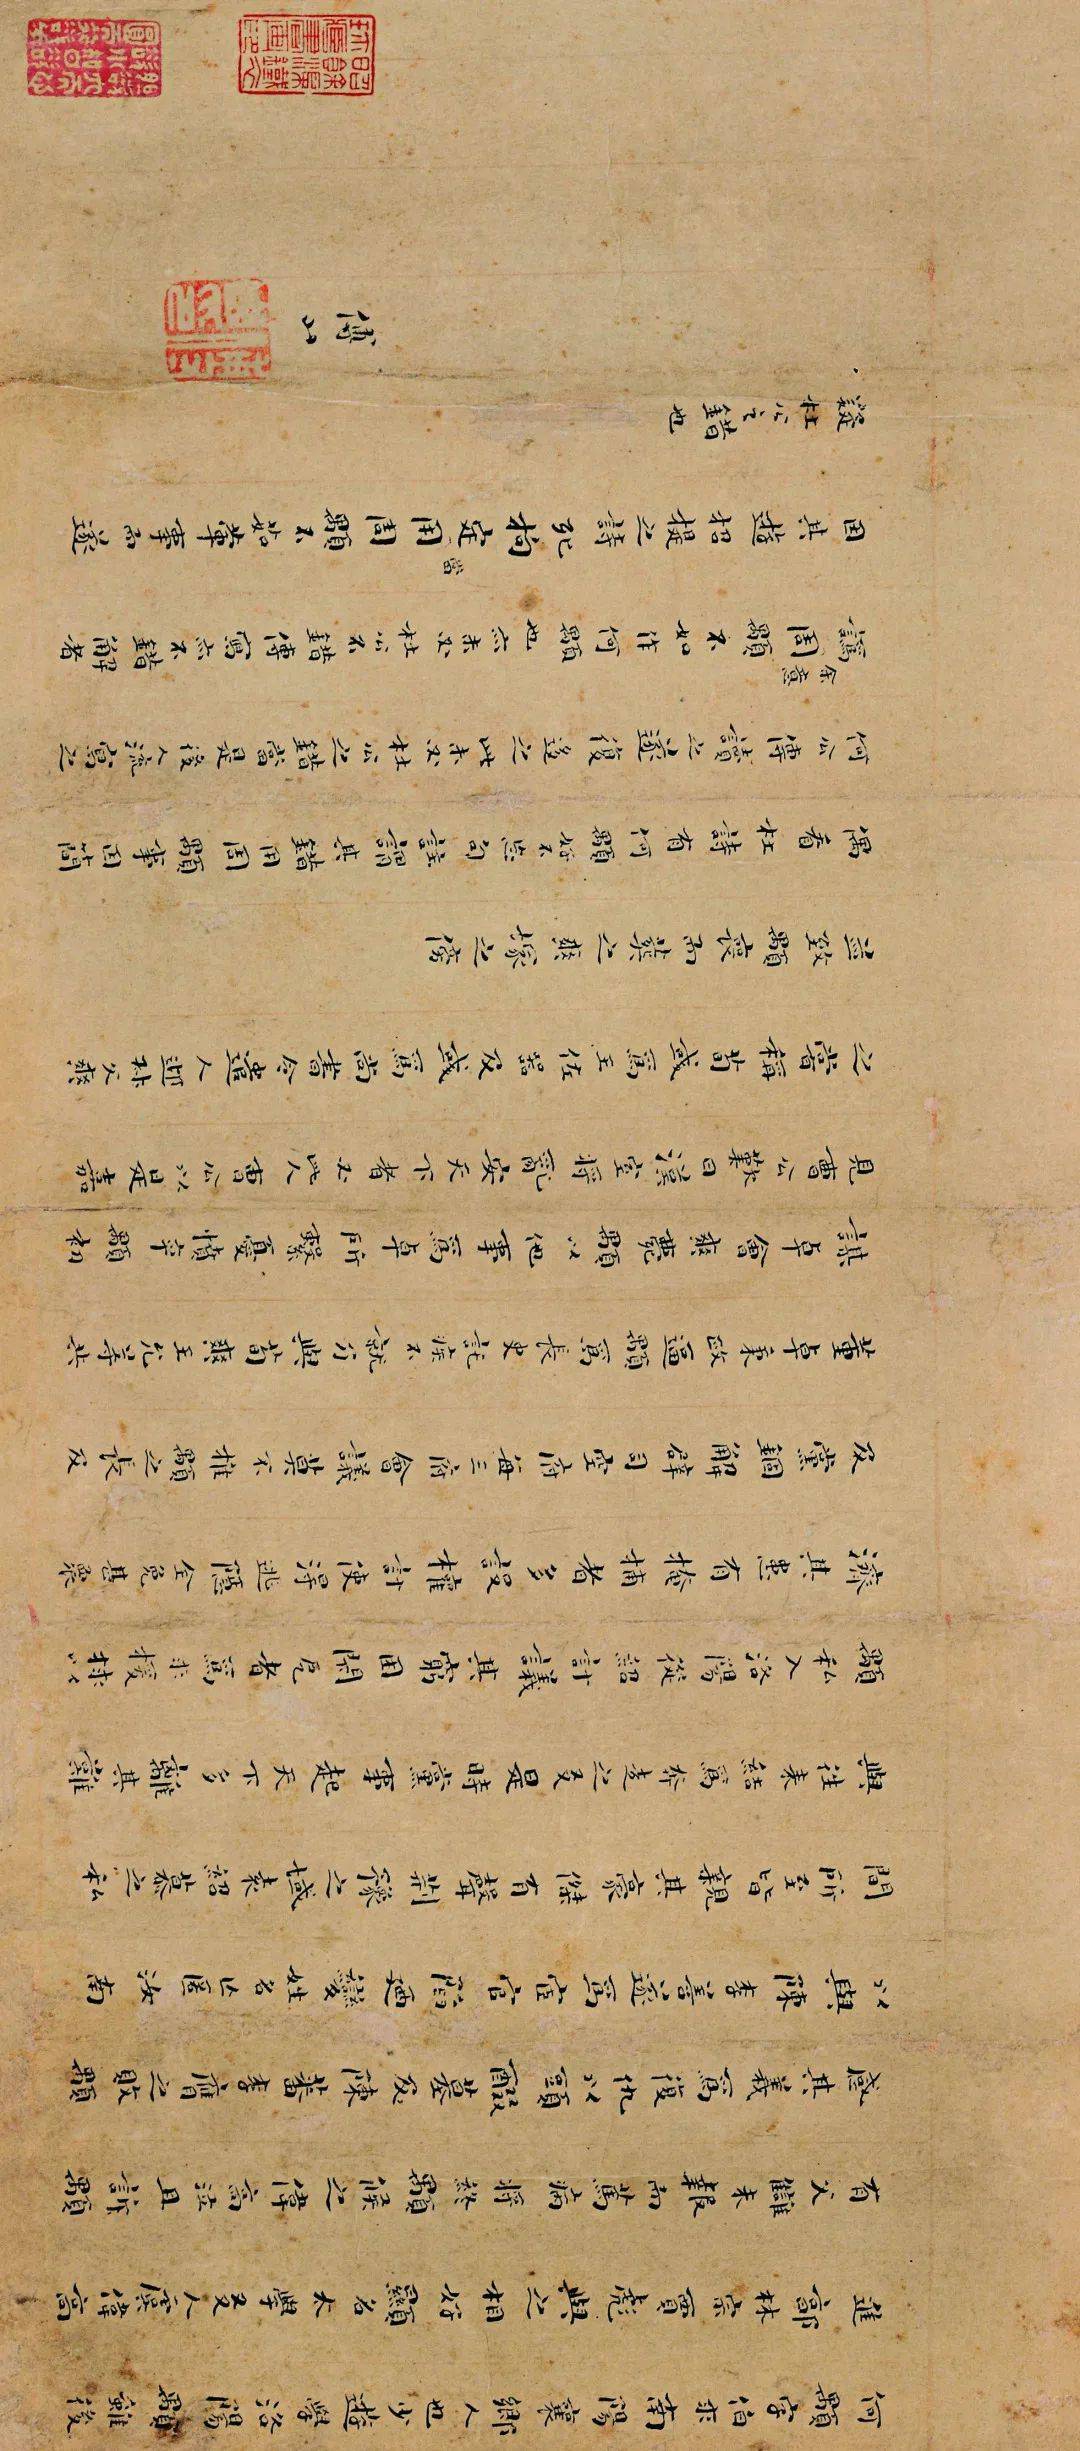 何顒字伯求南陽襄鄉人也少遊學洛陽顒雖後
進郭林宗賈彪與之相好顯名太學友人虞偉高
有父讎未報而篤病將終顒候之偉高泣且訴顒
感其義爲復仇以頭醊墓及陳蕃李膺之敗顒
以與陳李善遂爲宦官陷迺變姓名亡匿汝南
間所至皆親其豪傑有聲荊豫之域袁紹慕之私
與往來結爲奔走之友是時黨事起天下多離其難
顒私入洛陽從紹計議其窮困閉戹者爲求援救以
濟其患有掩捕者多設權計使得逃隱全免甚衆
及黨錮解辟司空府每三府會議莫不推顒之長及
董卓秉政逼顒爲長史託疾不就乃與荀爽王允等共
謀卓會爽薨顒以他事爲卓所繫憂憤卒顒初
見曹公歎曰漢室將亂安天下者必此人曹公以是嘉
之嘗稱荀彧爲王佐器及彧爲尚書令遣人迎叔父爽
並致顒喪而葬之爽塚之傍
偶看杜詩有何顒好不忘句註謂其錯用周顒事因簡
何公傳讀之遂復迻之此未必杜公之錯當是後人流寫之
譌周顒不如作何顒也亦未必杜公不錯傳寫亦不錯解者
余意
因其遊招提之詩死拘定用周顒不如葷事而遂
當
疑杜公之錯也
傅山